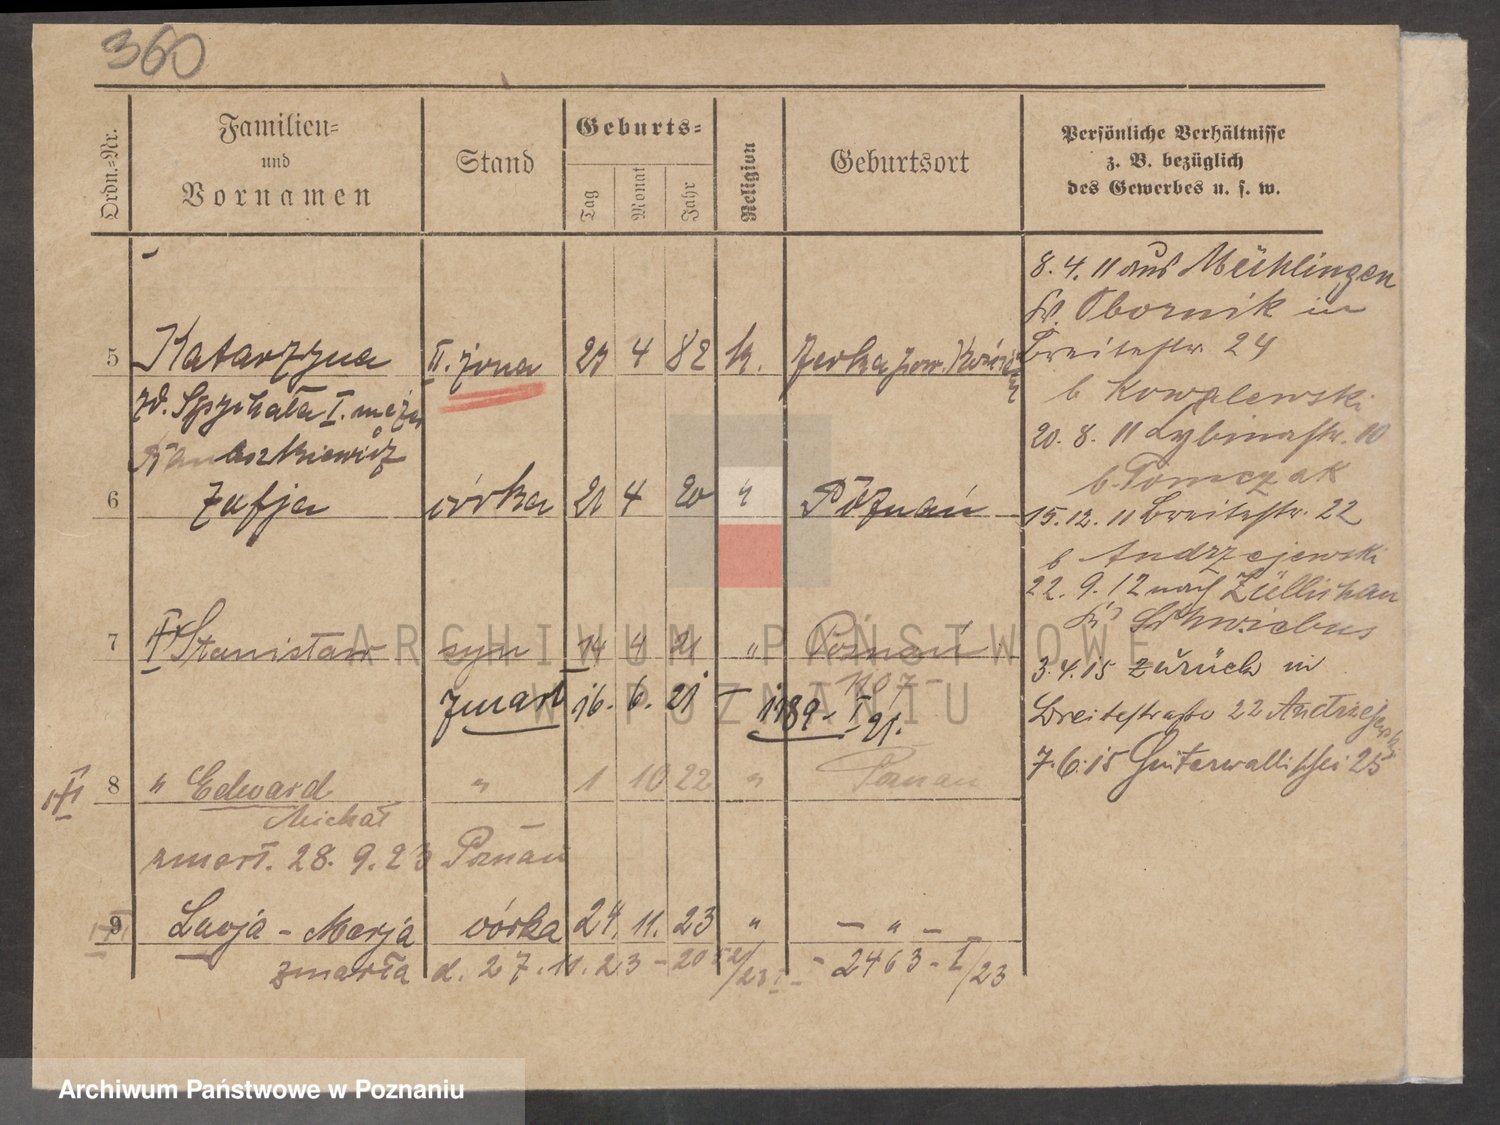 360
Ordn.-Nr.
Familien-
und
Vornamen
Stand
Geburts-
Tag
Monat
Jahr
Religion
Geburtsort
Persönliche Verhältnisse
z. B. bezüglich
des Gewerbes u. s. w.
5 Katarzyna II. żona 4 82 k. Jerka pow.
zd. Spychała I. męża
6 Zofja córka 21 4 20 " Poznań
7 Stanisław syn 14 4 21 " Poznań
zmarł 16. 6. 21
8 " Edward " 1 10 22 " Poznań
Michał
zmarł. 28. 9. 23 Poznań
9 Marja córka 24. 11. 23 " — " —
zmarła d. 27. 11. 23 - 2463 - I/23
8. 4. 11 aus Mühlingen
Kr. Obornik in
Breitestr. 24
b Kowalewski
20. 8. 11 Lybinastr. 10
b. Tomczak
15. 12. 11 Breitestr. 22
b Andrzejewski
22. 9. 12 nach Züllichau
Kr. Schwiebus
3. 4. 15 zurück in
Breitestraße 22 Andrzejewski
7. 6. 15 Hinterwallischei 25
ARCHIWUM PAŃSTWOWE
W POZNANIU
Archiwum Państwowe w Poznaniu